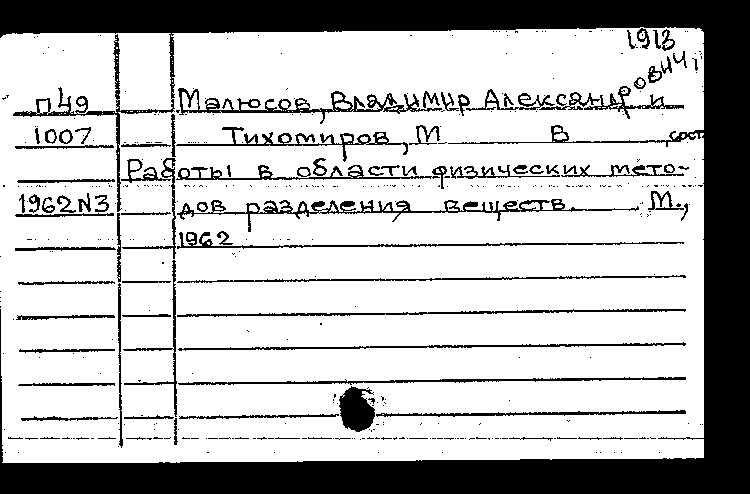 1913
П49 Малюсов, Владимир Александрович, и
1007 Тихомиров, М В , сост.
Работы в области физических мето-
1962N3 дов разделения веществ. М.,
1962